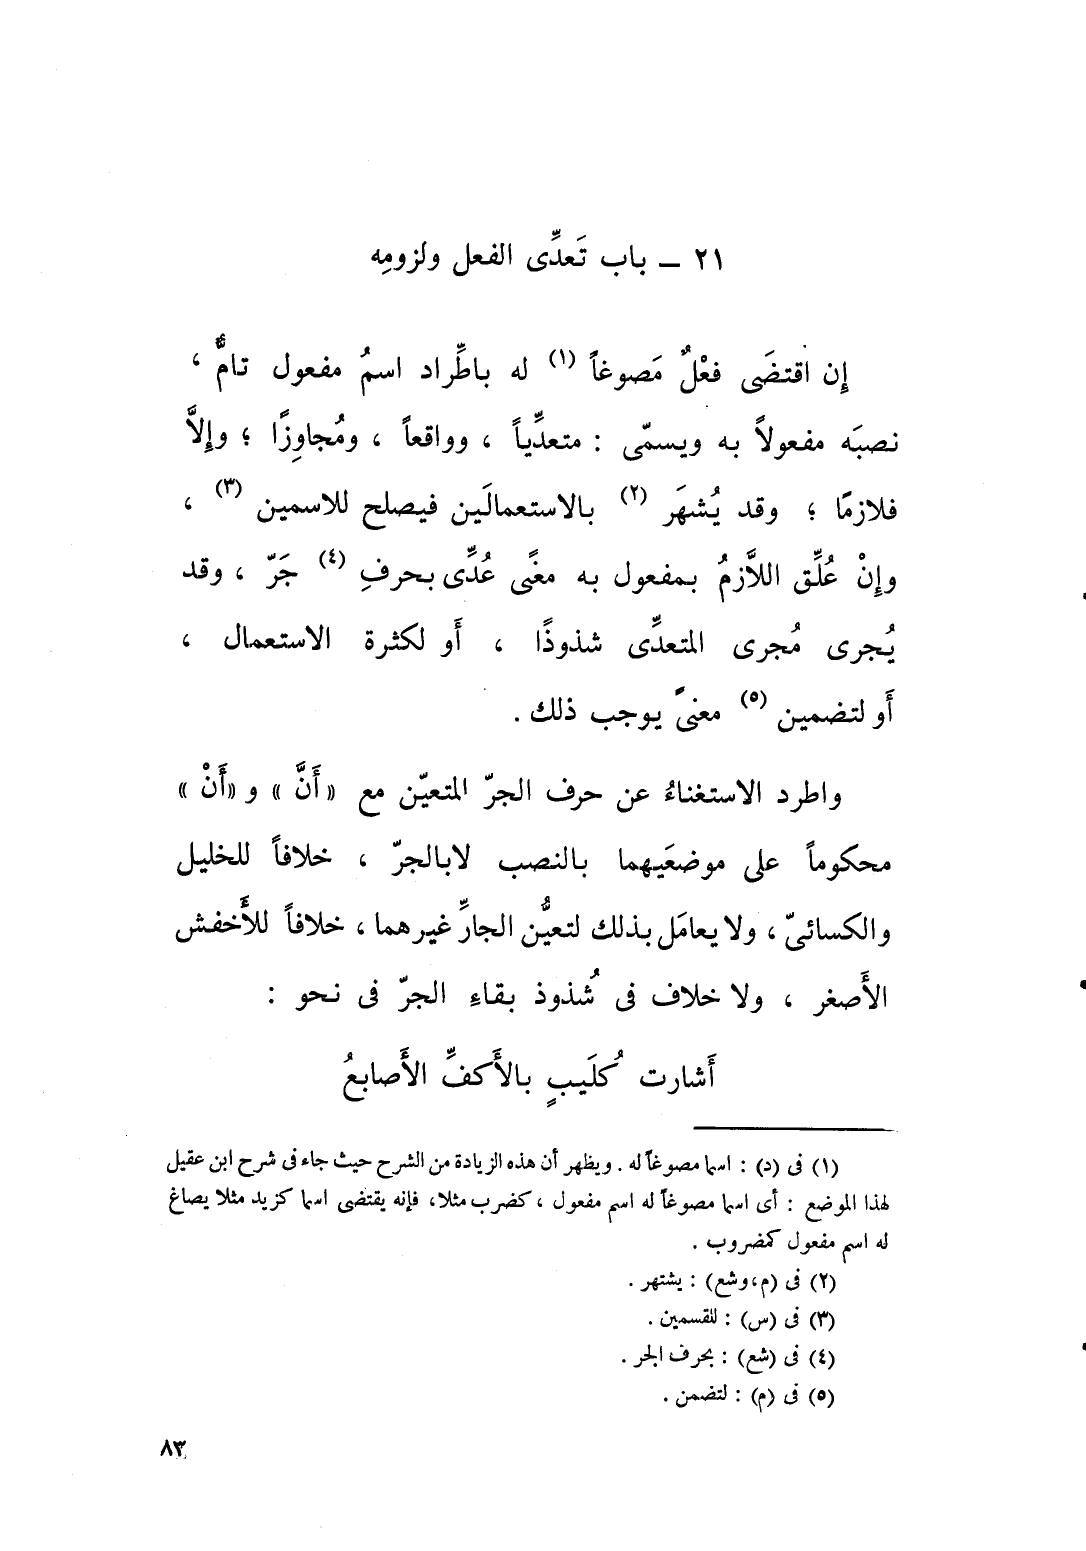 ٢١ ــ باب تَعدِّى الفعل ولزومِه
إن اقتضَى فعْلٌ مَصوغاً (١) له باطِّراد اسمُ مفعول تامٌّ ،
نصبَه مفعولاً به ويسمّى : متعدِّياً ، وواقعاً ، ومُجاوِزًا ؛ وإلاَّ
فلازمًا ؛ وقد يُشهَر (٢) بالاستعمالَين فيصلح للاسمين (٣) ،
وإنْ عُلِّق اللاَّزمُ بمفعول به معنًى عُدِّى بحرفِ (٤) جَرّ ، وقد
يُجرى مُجرى المتعدِّى شذوذًا ، أَو لكثرة الاستعمال ،
أَو لتضمين (٥) معنىً يوجب ذلك .
واطرد الاستغناءُ عن حرف الجرّ المتعيّن مع «أَنَّ » و «أَنْ »
محكوماً على موضعَيهما بالنصب لابالجرّ ، خلافاً للخليل
والكسائىّ ، ولا يعامَل بذلك لتعيُّن الجارِّ غيرهما ، خلافاً للأَخفش
الأَصغر ، ولا خلاف فى شُذوذ بقاءِ الجرّ فى نحو :
أَشارت كُلَيبٍ بالأَكفِّ الأَصابعُ
(١) فى (د) : اسما مصوغاً له . ويظهر أن هذه الزيادة من الشرح حيث جاء فى شرح ابن عقيل
لهذا الموضع : أى اسما مصوغاً له اسم مفعول ، كضرب مثلا، فإنه يقتضى اسما كزيد مثلا يصاغ
له اسم مفعول كمضروب .
(٢) فى (م، وشع) : يشتهر .
(٣) فى (س) : للقسمين .
(٤) فى (شع) : بحرف الجر .
(٥) فى (م) : لتضمن .
٨٣